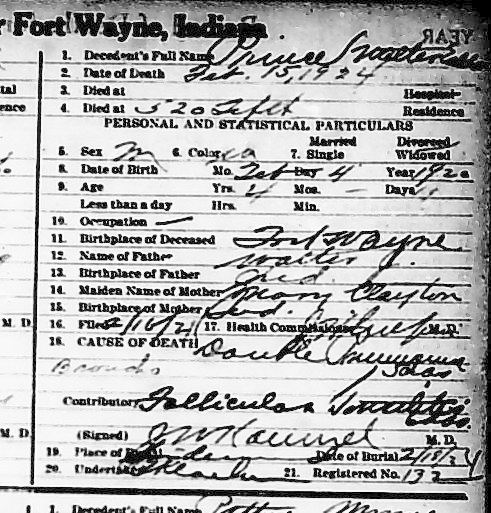 Fort Wayne, Indiana
YEAR
1. Decedent's Full Name Prince
2. Date of Death Feb. 15, 1924
3. Died at Hospital
4. Died at 520 Taft Residence
PERSONAL AND STATISTICAL PARTICULARS
Married Divorced
5. Sex M 6. Color 7. Single Widowed
8. Date of Birth Mo. Feb Day 4 Year 1920
9. Age Yrs. 4 Mos. — Days
Less than a day Hrs. Min.
10. Occupation —
11. Birthplace of Deceased Fort Wayne
12. Name of Father Walter
13. Birthplace of Father Ind.
14. Maiden Name of Mother Mary Clayton
15. Birthplace of Mother Ind.
M. D. 16. Filed 2/16/24 17. Health Commissioner M.D.
18. CAUSE OF DEATH Double Pneumonia
Broncho
Contributory Follicular Tonsilitis
M. D. (Signed) M. D.
19. Place of Burial Date of Burial 2/18/24
20. Undertaker 21. Registered No. 132
1. Decedent's Full Name